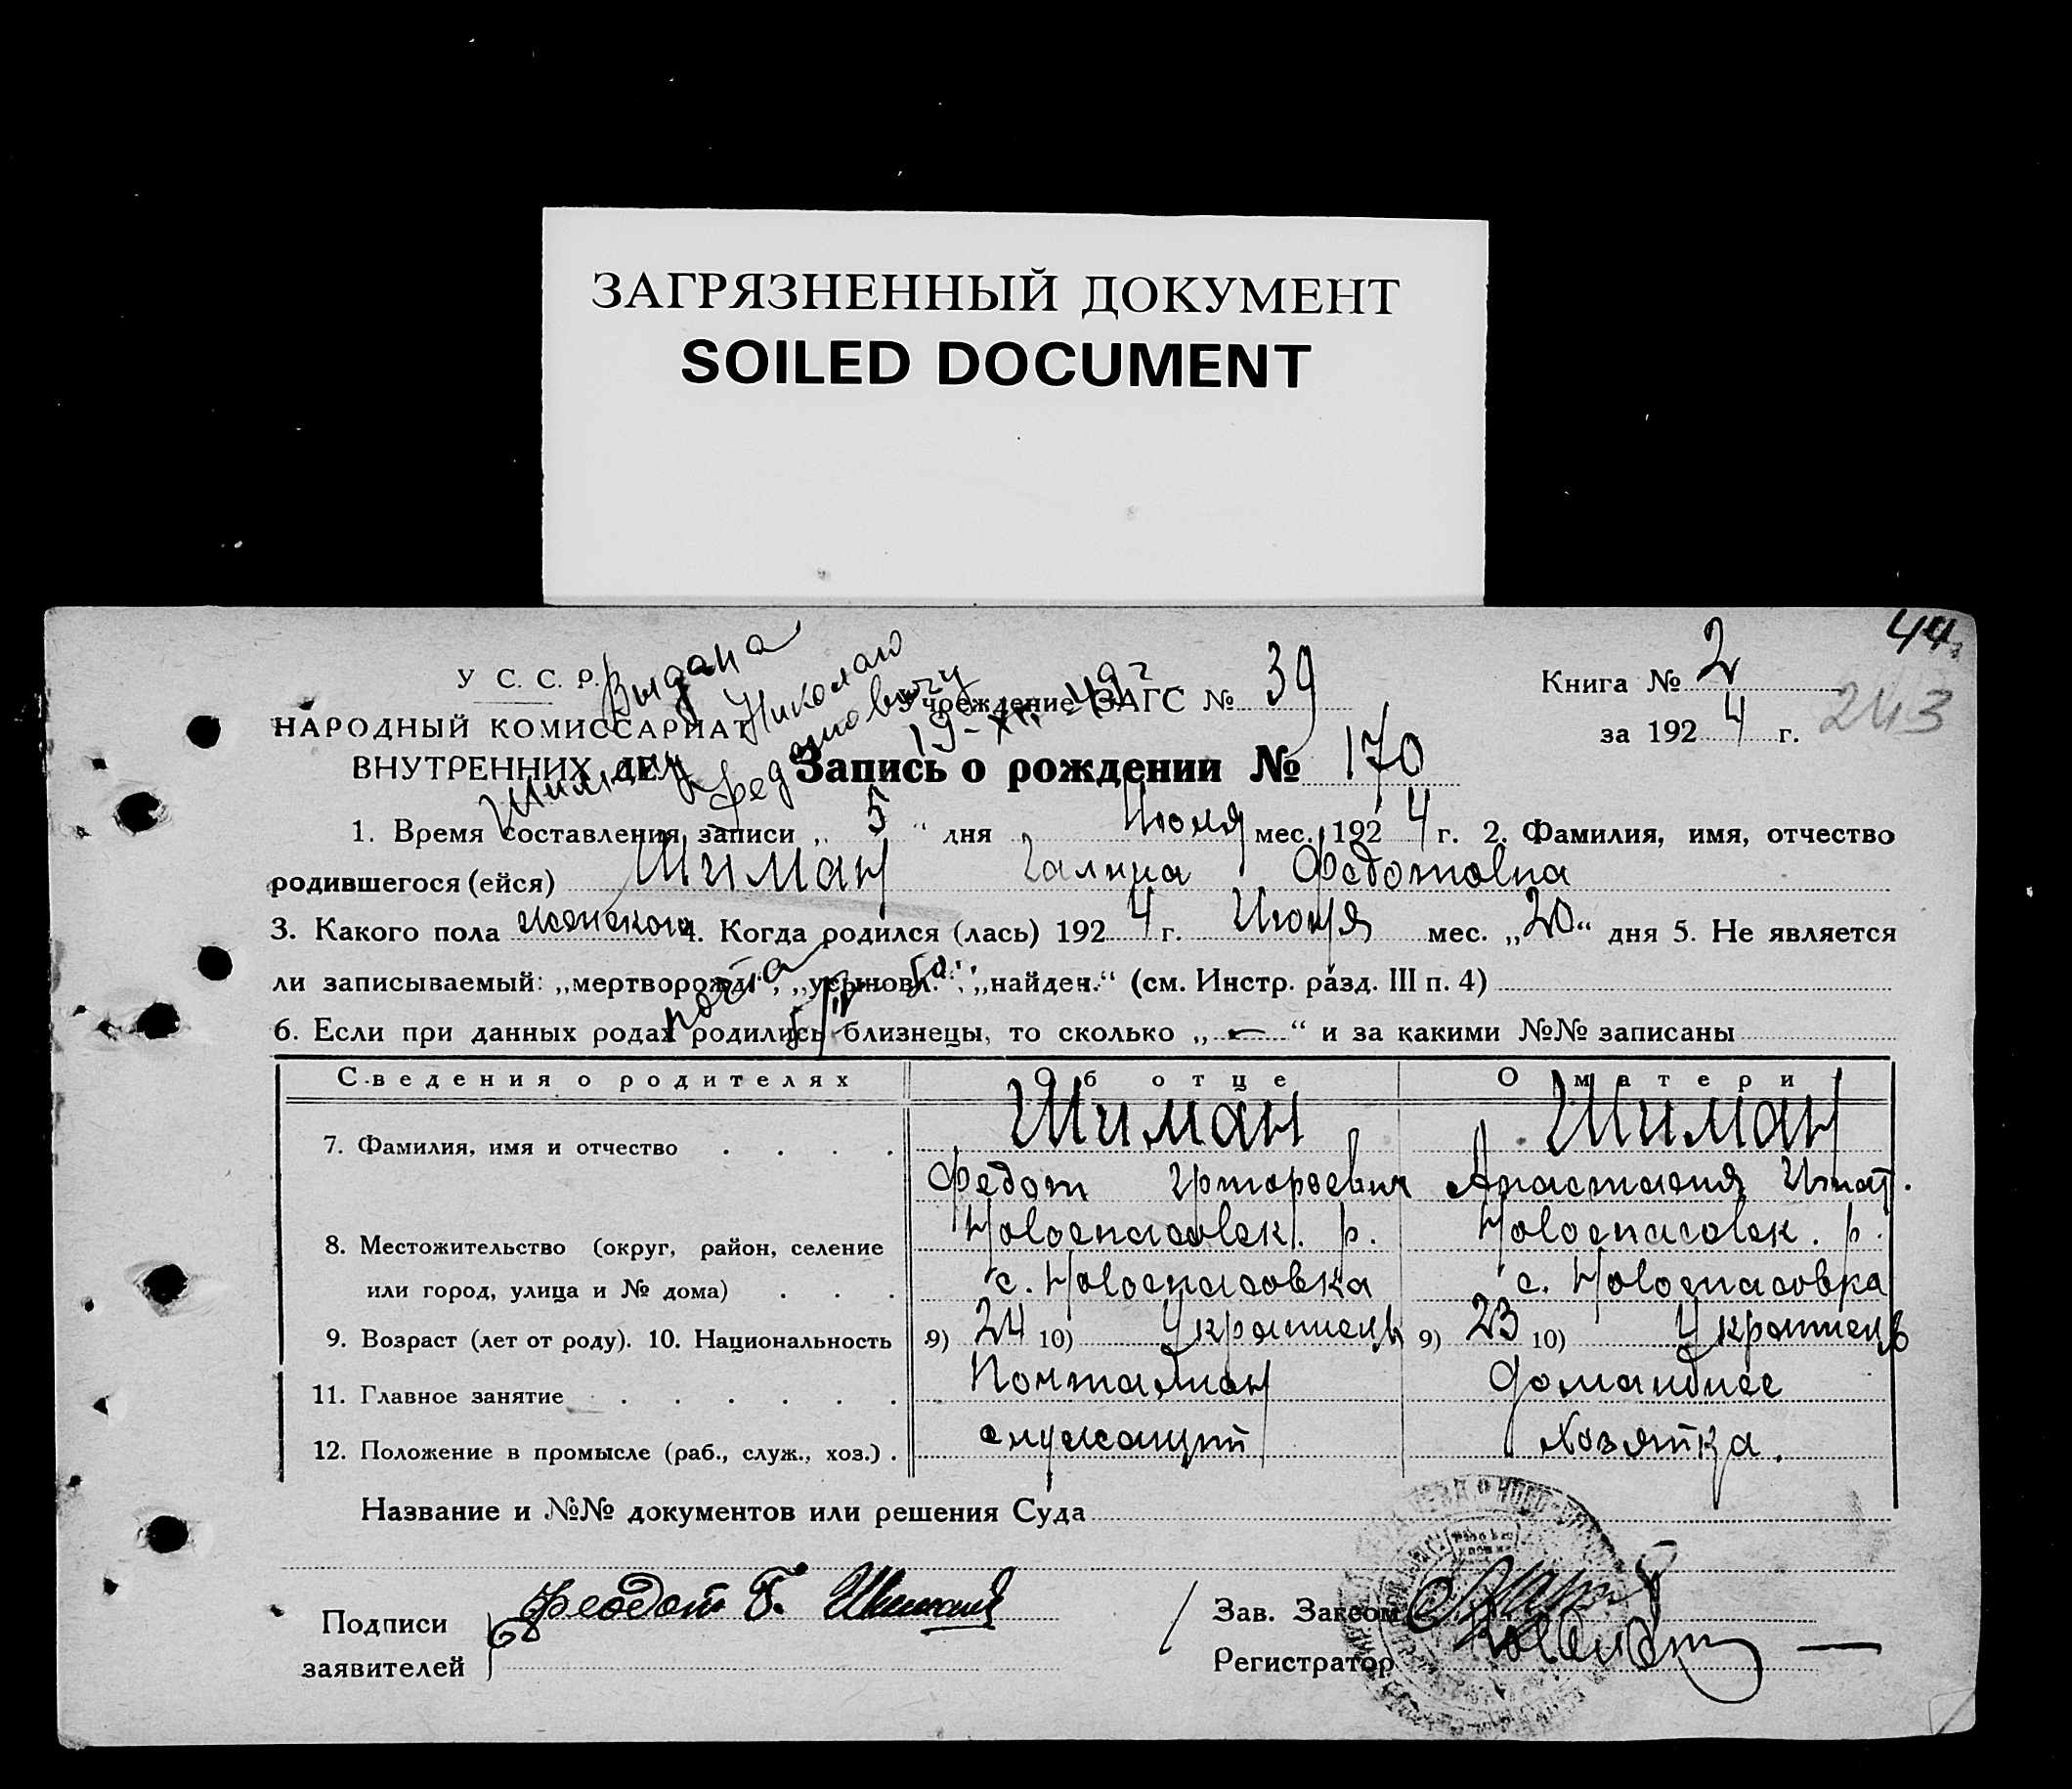 ЗАГРЯЗНЕННЫЙ ДОКУМЕНТ
SOILED DOCUMENT
44
У С. С. Р.
Выдана
Шиман Николаю
Федотовичу
19-XII-49 г
НАРОДНЫЙ КОМИССАРИАТ
ВНУТРЕННИХ ДЕЛ
Учреждение ЗАГС № 39
Книга № 2
за 1924 г.
243
Запись о рождении № 170
1. Время составления записи „ 5 “ дня Июля мес. 1924 г. 2. Фамилия, имя, отчество
родившегося (ейся) Шиман Галина Федотовна
3. Какого пола женского 4. Когда родился (лась) 1924 г. Июня мес. „20“ дня 5. Не является
ли записываемый: „мертворожд“, „усыновл.“, „найден.“ (см. Инстр. разд. III п. 4)
6. Если при данных родах родились близнецы, то сколько „ — “ и за какими №№ записаны
Сведения о родителях Об отце О матери
7. Фамилия, имя и отчество Шиман Шиман
Федот Григорьевич Анастасия Игнат.
8. Местожительство (округ, район, селение Новоспасовск. р. Новоспасовск. р.
или город, улица и № дома) с. Новоспасовка с. Новоспасовка
9. Возраст (лет от роду). 10. Национальность 9) 24 10) Украинець 9) 23 10) Украинець
11. Главное занятие Почтальон Домашнее
12. Положение в промысле (раб., служ., хоз.) служащий хозяйка.
Название и №№ документов или решения Суда
Подписи
заявителей
Феодот Г. Шиман
68
Зав. Загсом
Регистратор